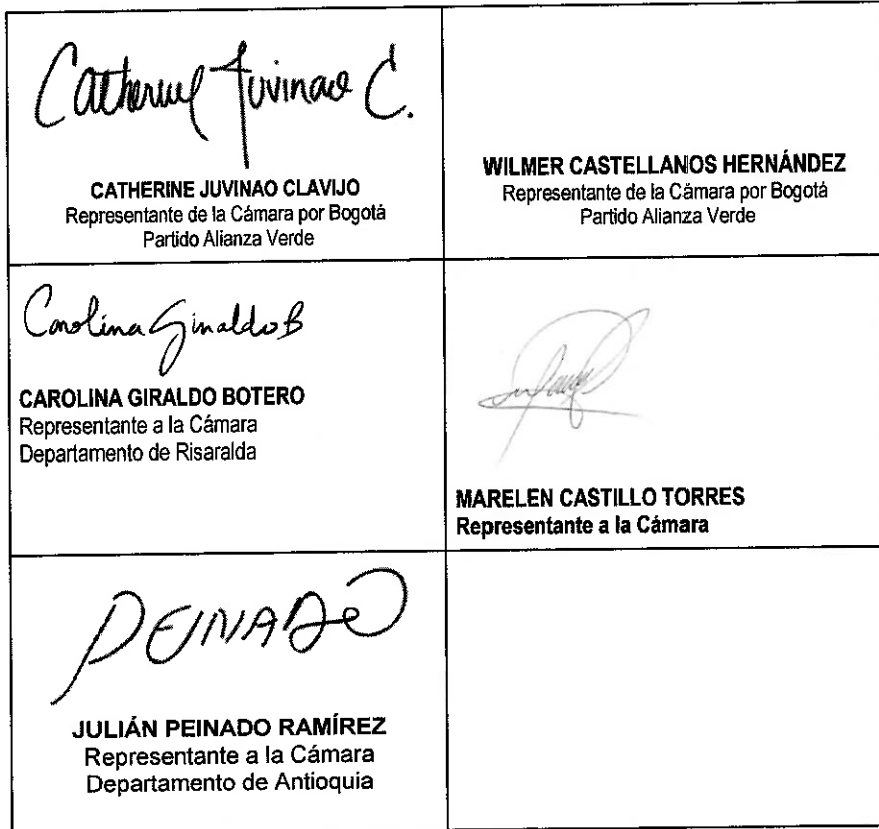 Catherine Juvinao C.
CATHERINE JUVINAO CLAVIJO
Representante de la Cámara por Bogotá
Partido Alianza Verde
WILMER CASTELLANOS HERNÁNDEZ
Representante de la Cámara por Bogotá
Partido Alianza Verde
Carolina Giraldo B
CAROLINA GIRALDO BOTERO
Representante a la Cámara
Departamento de Risaralda
MARELEN CASTILLO TORRES
Representante a la Cámara
PEINADO
JULIÁN PEINADO RAMÍREZ
Representante a la Cámara
Departamento de Antioquia